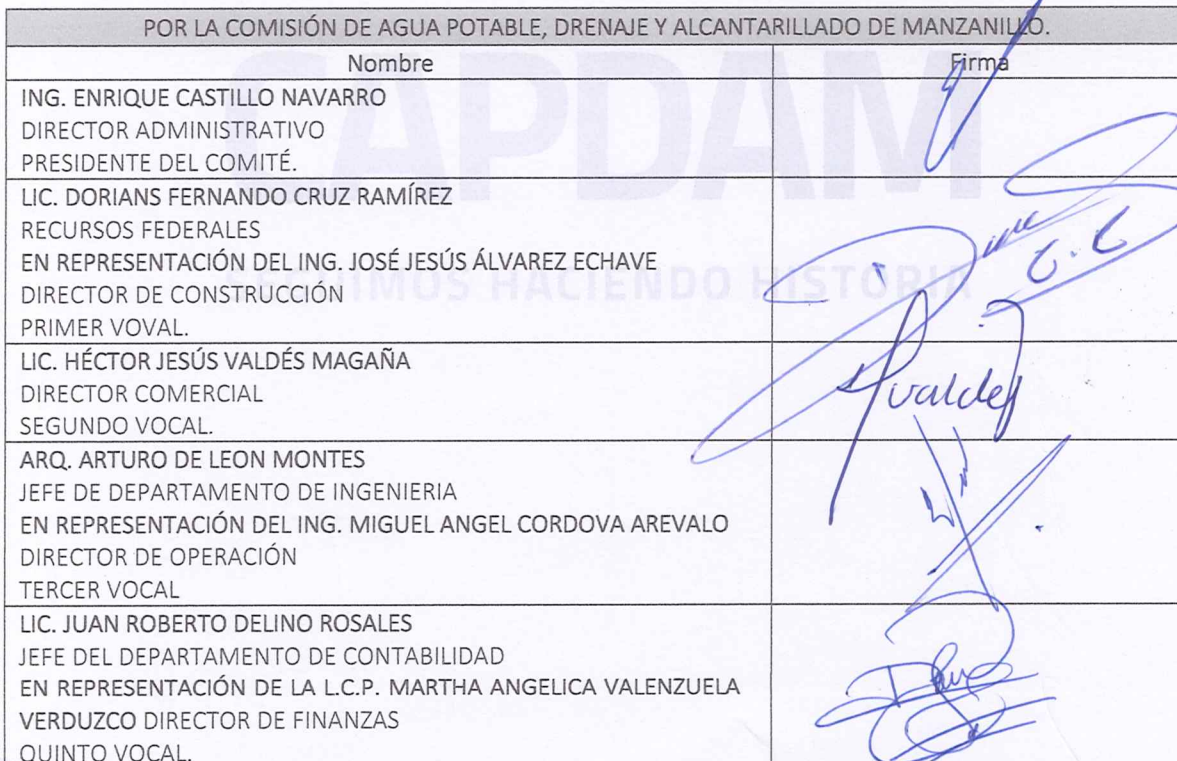 POR LA COMISIÓN DE AGUA POTABLE, DRENAJE Y ALCANTARILLADO DE MANZANILLO.
Nombre
Firma
CAPDAM
SEGUIMOS HACIENDO HISTORIA
ING. ENRIQUE CASTILLO NAVARRO
DIRECTOR ADMINISTRATIVO
PRESIDENTE DEL COMITÉ.
LIC. DORIANS FERNANDO CRUZ RAMÍREZ
RECURSOS FEDERALES
EN REPRESENTACIÓN DEL ING. JOSÉ JESÚS ÁLVAREZ ECHAVE
DIRECTOR DE CONSTRUCCIÓN
PRIMER VOVAL.
LIC. HÉCTOR JESÚS VALDÉS MAGAÑA
DIRECTOR COMERCIAL
SEGUNDO VOCAL.
ARQ. ARTURO DE LEON MONTES
JEFE DE DEPARTAMENTO DE INGENIERIA
EN REPRESENTACIÓN DEL ING. MIGUEL ANGEL CORDOVA AREVALO
DIRECTOR DE OPERACIÓN
TERCER VOCAL
LIC. JUAN ROBERTO DELINO ROSALES
JEFE DEL DEPARTAMENTO DE CONTABILIDAD
EN REPRESENTACIÓN DE LA L.C.P. MARTHA ANGELICA VALENZUELA
VERDUZCO DIRECTOR DE FINANZAS
QUINTO VOCAL.